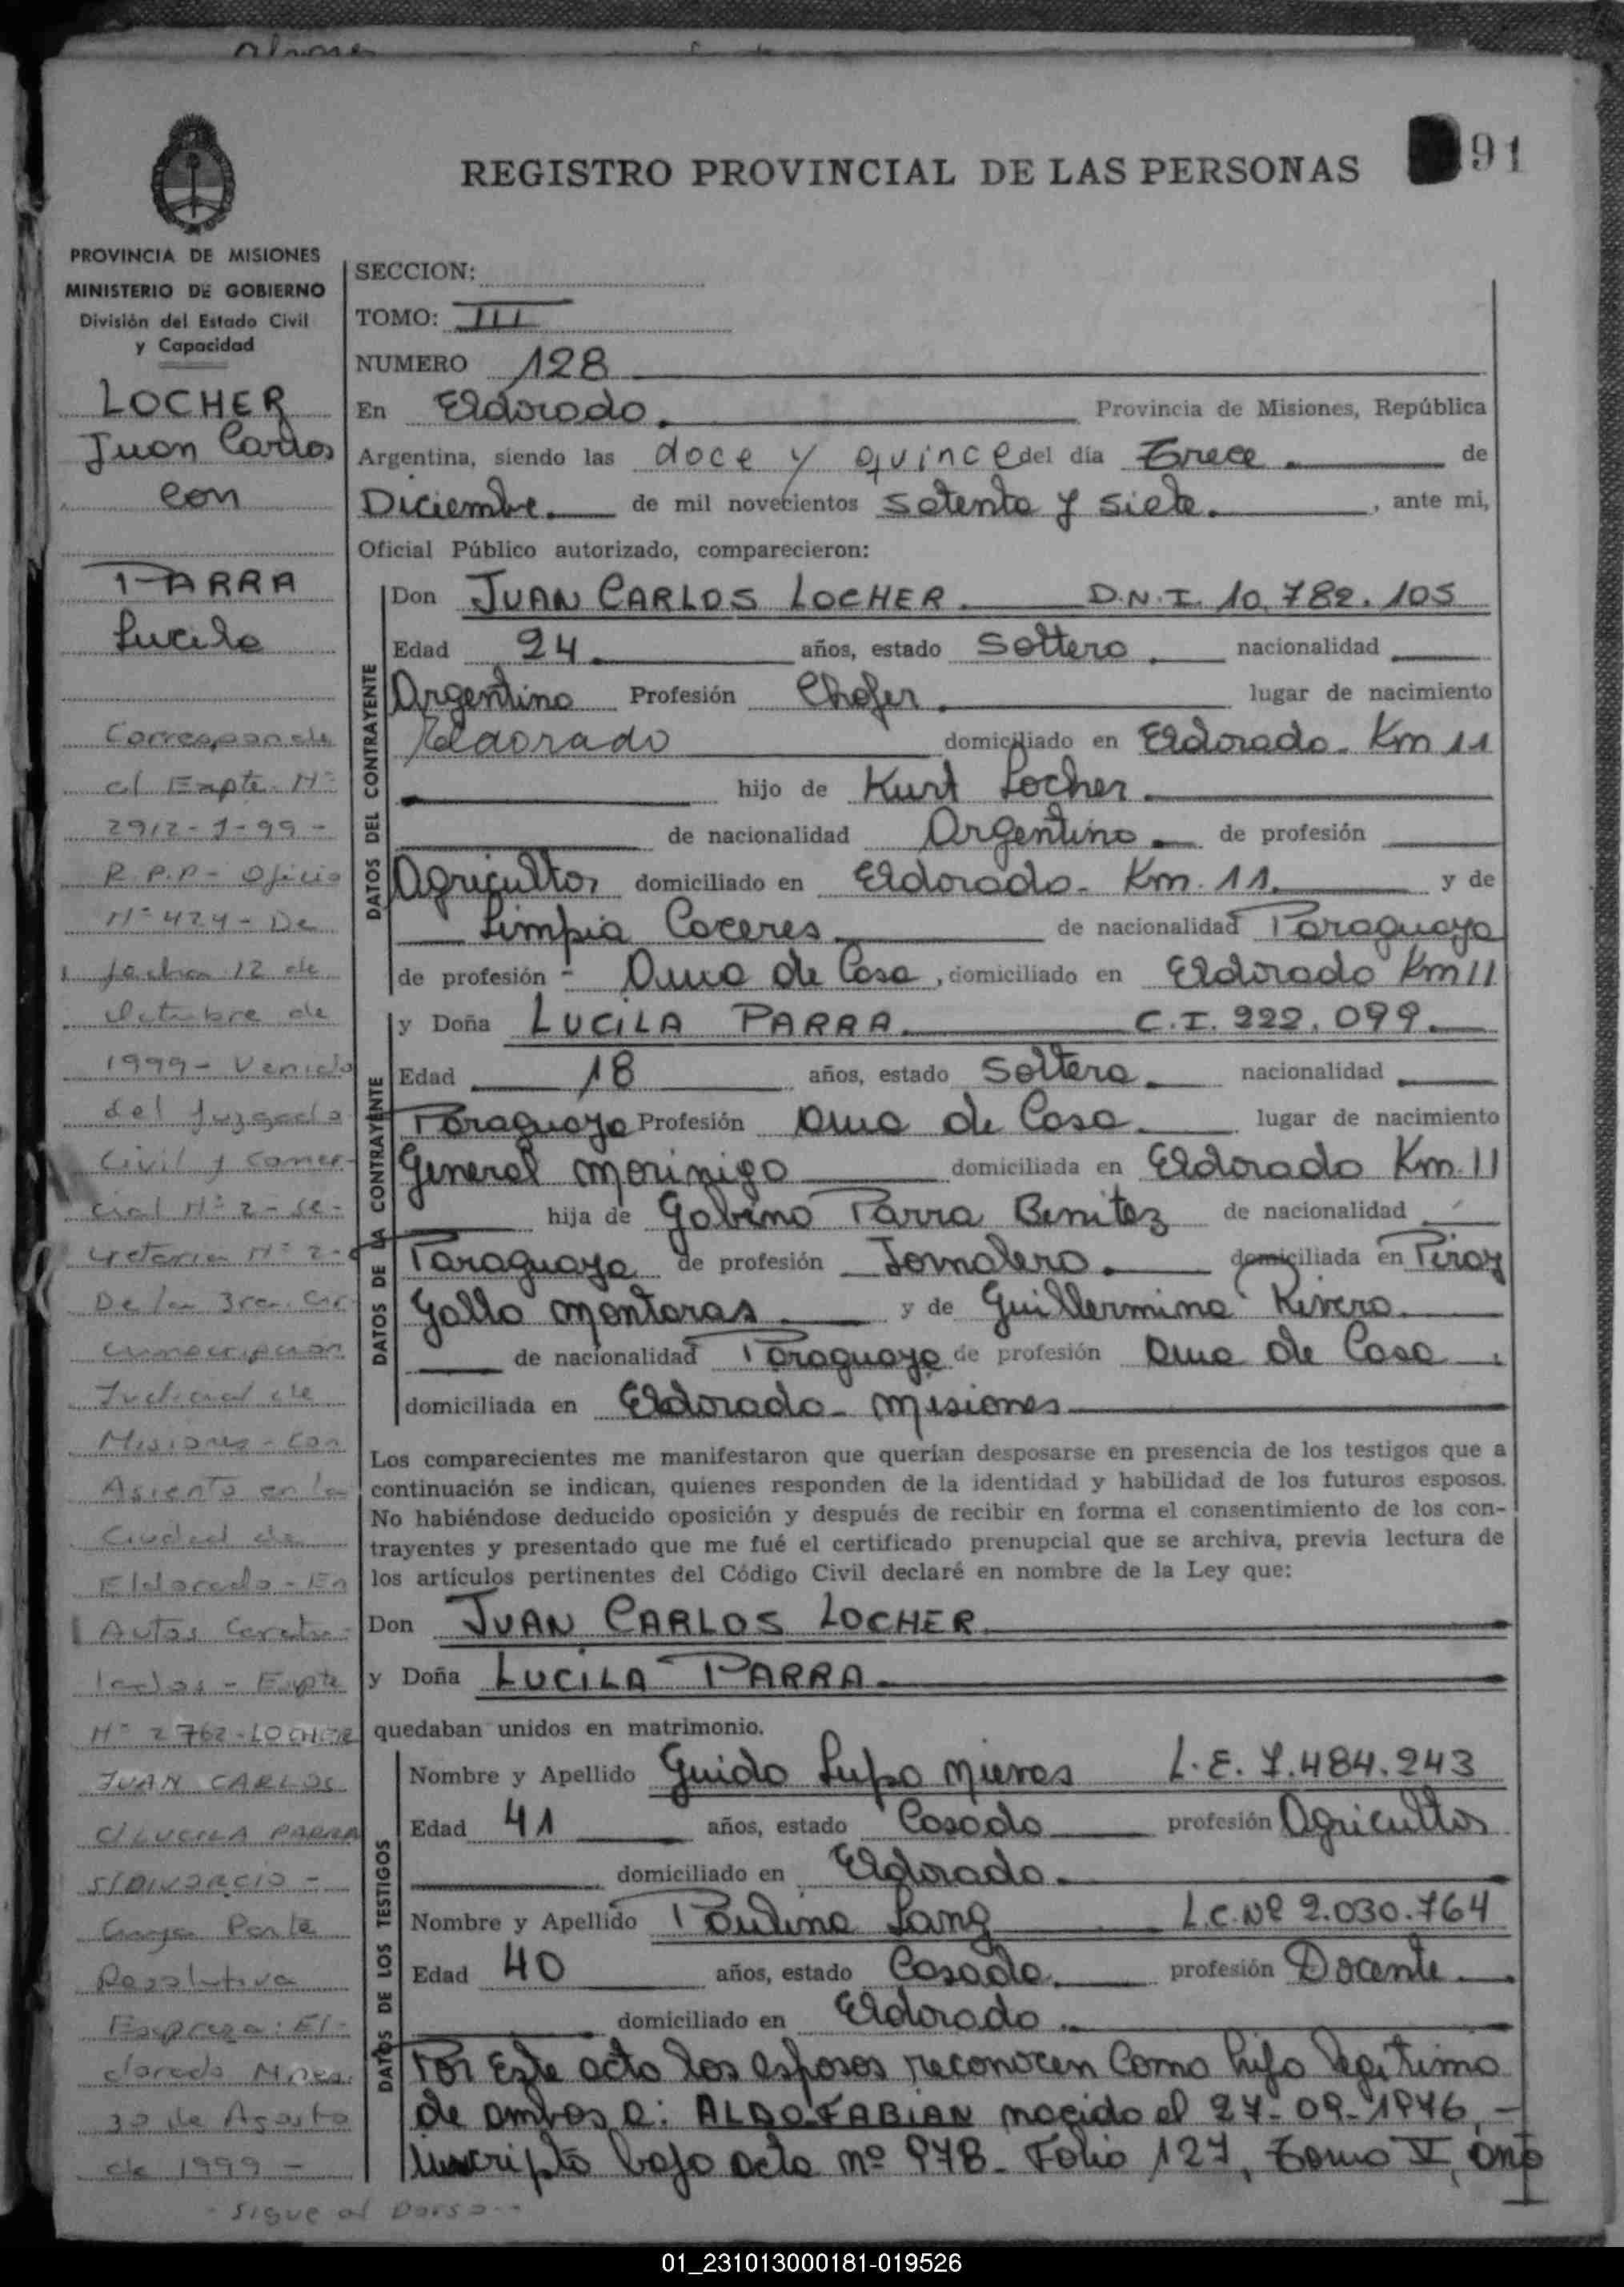 91
REGISTRO PROVINCIAL DE LAS PERSONAS
PROVINCIA DE MISIONES
MINISTERIO DE GOBIERNO
División del Estado Civil
y Capacidad
LOCHER
Juan Carlos
con
PARRA
Lucila
Corresponde
al Expte. Nº
2912-1-99-
R.P.P- Oficio
Nº 424- De
fecha 12 de
Octubre de
1999- Venido
del Juzgado
Civil y Comer-
cial Nº 2- Se-
cretaria Nº 2-
De la 3ra. Cir-
cunscripcion
Judicial de
Misiones- Con
Asiento en la
Ciudad de
Eldorado- En
Autos Caratu-
lados- Expte
Nº 2762-LOCHER
JUAN CARLOS
C/LUCILA PARRA
S/DIVORCIO-
Cuya Parte
Resolutiva
Expresa: El-
dorado Mnes.
30 de Agosto
de 1999-
- Sigue al Dorso--
SECCION:
TOMO: III
NUMERO 128
En Eldorado. Provincia de Misiones, República
Argentina, siendo las doce y quince del día Trece de
Diciembre. de mil novecientos setenta y siete. , ante mi,
Oficial Público autorizado, comparecieron:
DATOS DEL CONTRAYENTE
Don JUAN CARLOS LOCHER. D.N.I. 10.782.105
Edad 24. años, estado Soltero. nacionalidad
Argentino Profesión Chofer. lugar de nacimiento
Eldorado domiciliado en Eldorado. Km 11
hijo de Kurt Locher.
de nacionalidad Argentino. de profesión
Agricultor domiciliado en Eldorado. Km. 11. y de
Limpia Caceres. de nacionalidad Paraguaya
de profesión - Ama de Casa, domiciliado en Eldorado Km 11
DATOS DE LA CONTRAYENTE
y Doña LUCILA PARRA. C.I. 222.099.
Edad 18 años, estado Soltera. nacionalidad
Paraguaya Profesión Ama de Casa. lugar de nacimiento
General Morinigo domiciliada en Eldorado Km. 11
hija de Gabino Parra Benitez de nacionalidad
Paraguaya de profesión Jornalero. domiciliada en Piray
Gallo Montaras y de Guillermina Rivero.
de nacionalidad Paraguaya de profesión Ama de Casa.
domiciliada en Eldorado- Misiones
Los comparecientes me manifestaron que querían desposarse en presencia de los testigos que a
continuación se indican, quienes responden de la identidad y habilidad de los futuros esposos.
No habiéndose deducido oposición y después de recibir en forma el consentimiento de los con-
trayentes y presentado que me fué el certificado prenupcial que se archiva, previa lectura de
los artículos pertinentes del Código Civil declaré en nombre de la Ley que:
Don JUAN CARLOS LOCHER.
y Doña LUCILA PARRA.
quedaban unidos en matrimonio.
DATOS DE LOS TESTIGOS
Nombre y Apellido Guido Lupo Nieves L.E. 7.484.243
Edad 41 años, estado Casado profesión Agricultor
domiciliado en Eldorado.
Nombre y Apellido Paulina Lang L.C.Nº 2.030.764
Edad 40 años, estado Casada. profesión Docente.
domiciliado en Eldorado.
Por Este acto los esposos reconocen Como hijo legitimo
de ambos a: ALDO FABIAN nacido el 27-09-1976,-
inscripto bajo acta nº 978- Folio 127, Tomo V, Año
01_231013000181-019526